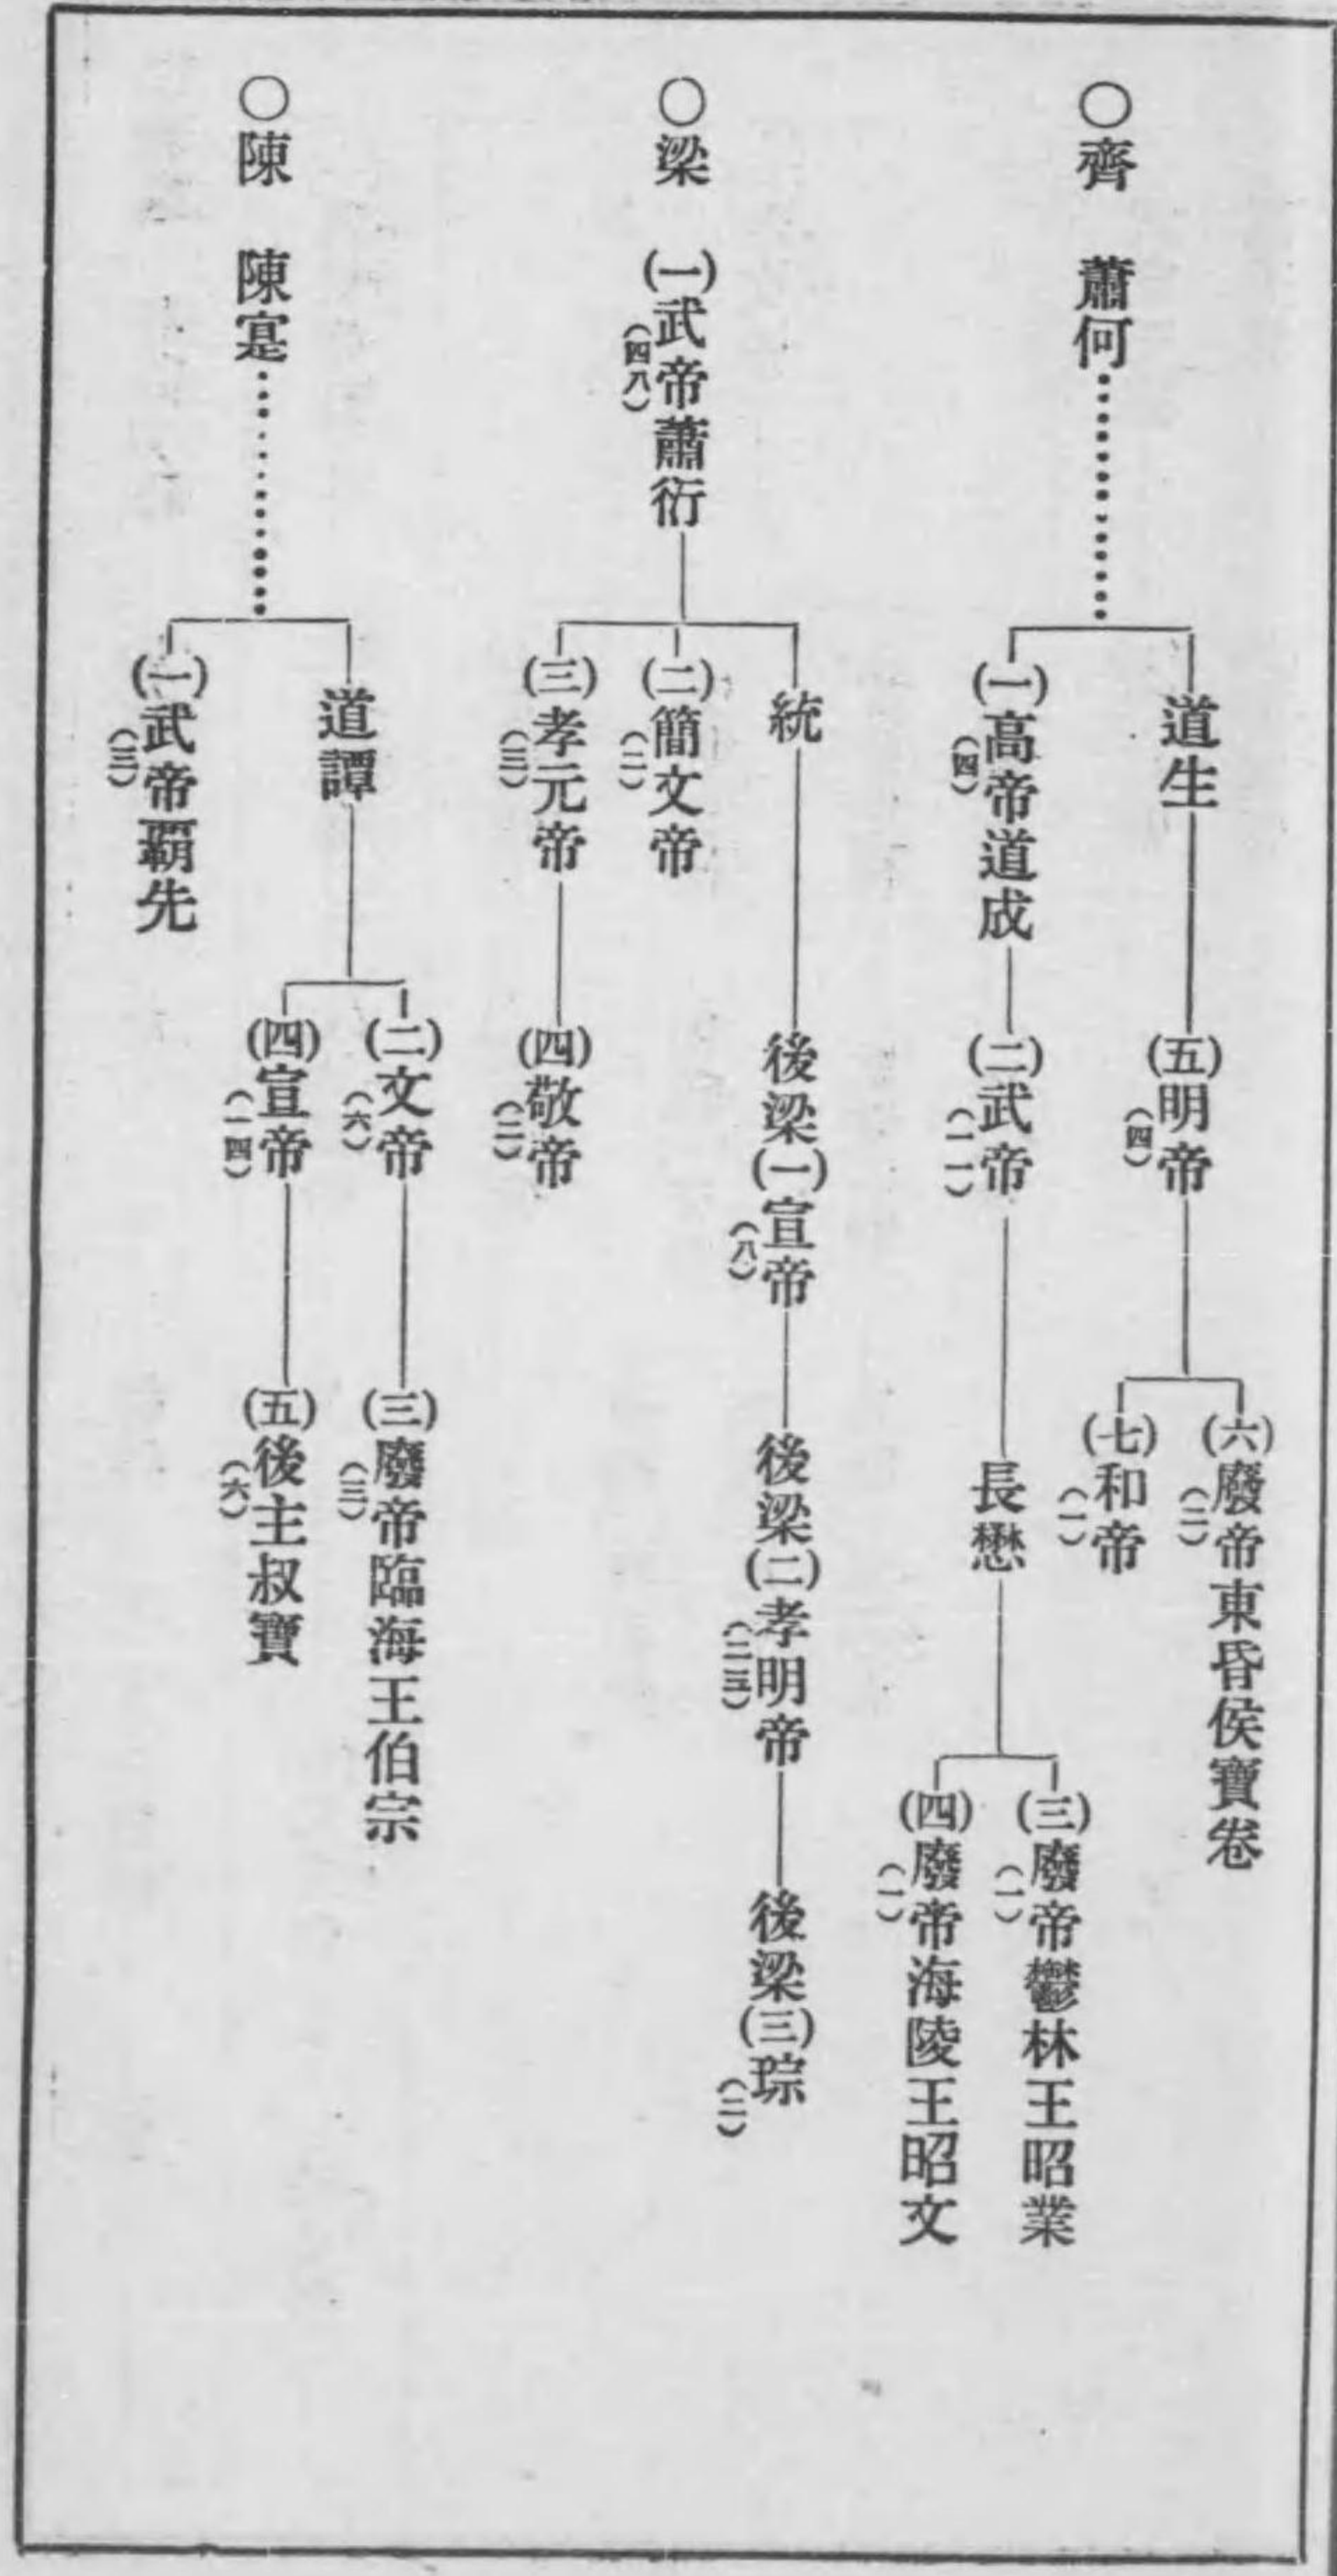 ○齊　蕭何
道生
(五)明帝
(四)
(六)廢帝東昏侯寶卷
(二)
(七)和帝
(一)
(一)高帝道成
(四)
(二)武帝
(一一)
長懋
(三)廢帝鬱林王昭業
(一)
(四)廢帝海陵王昭文
(一)
○梁　(一)武帝蕭衍
(四八)
統
後梁(一)宣帝
(八)
後梁(二)孝明帝
(二三)
後梁(三)琮
(二)
(二)簡文帝
(二)
(三)孝元帝
(三)
(四)敬帝
(二)
○陳　陳寔
道譚
(二)文帝
(六)
(三)廢帝臨海王伯宗
(三)
(四)宣帝
(一四)
(五)後主叔寶
(六)
(一)武帝霸先
(三)